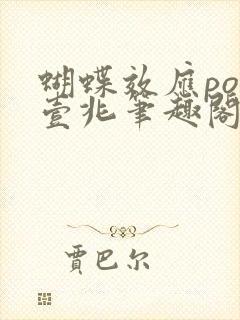 蝴蝶效应po
壹兆笔趣阁
贾巴尔